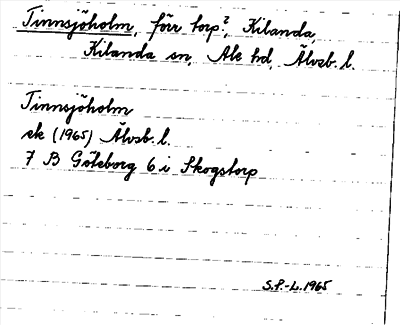 Tinnsjöholm, förr torp?, Kilanda,
Kilanda sn, Ale hd, Älvsb. l.
Tinnsjöholm
ek (1965) Älvsb. l.
7 B Göteborg 6 i Skogstorp
S.P.-L. 1965